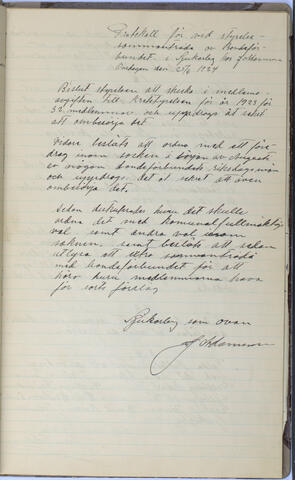 Protokoll för ved styrelse-
sammanträde av Bondeför-
bundet i Sjukarby hos folkarna
Onsdagen den 25/6 1924
Beslöt styrelsen att skicka in medlems-
avgiften till kretsstyrelsen för år 1923 för
32 medlemmar och uppdrogs åt sekret
att ombesörja det.
Vidare beslöts att ordna med ett före-
drag inom socken i början av Augusti
av någon bondeförbundets riksdagsman
och uppdrogs det åt sekret att även
ombesörja det.
Sedan diskuterades huru det skulle
ordna sig med komunalfullmäktige
val samt andra val inom
soknen, samt beslöts att sedan
utlysa ett extra sammanträde
med bondeförbundet för att
höra huru medlemmarna hava
för sorts förslag
som ovan